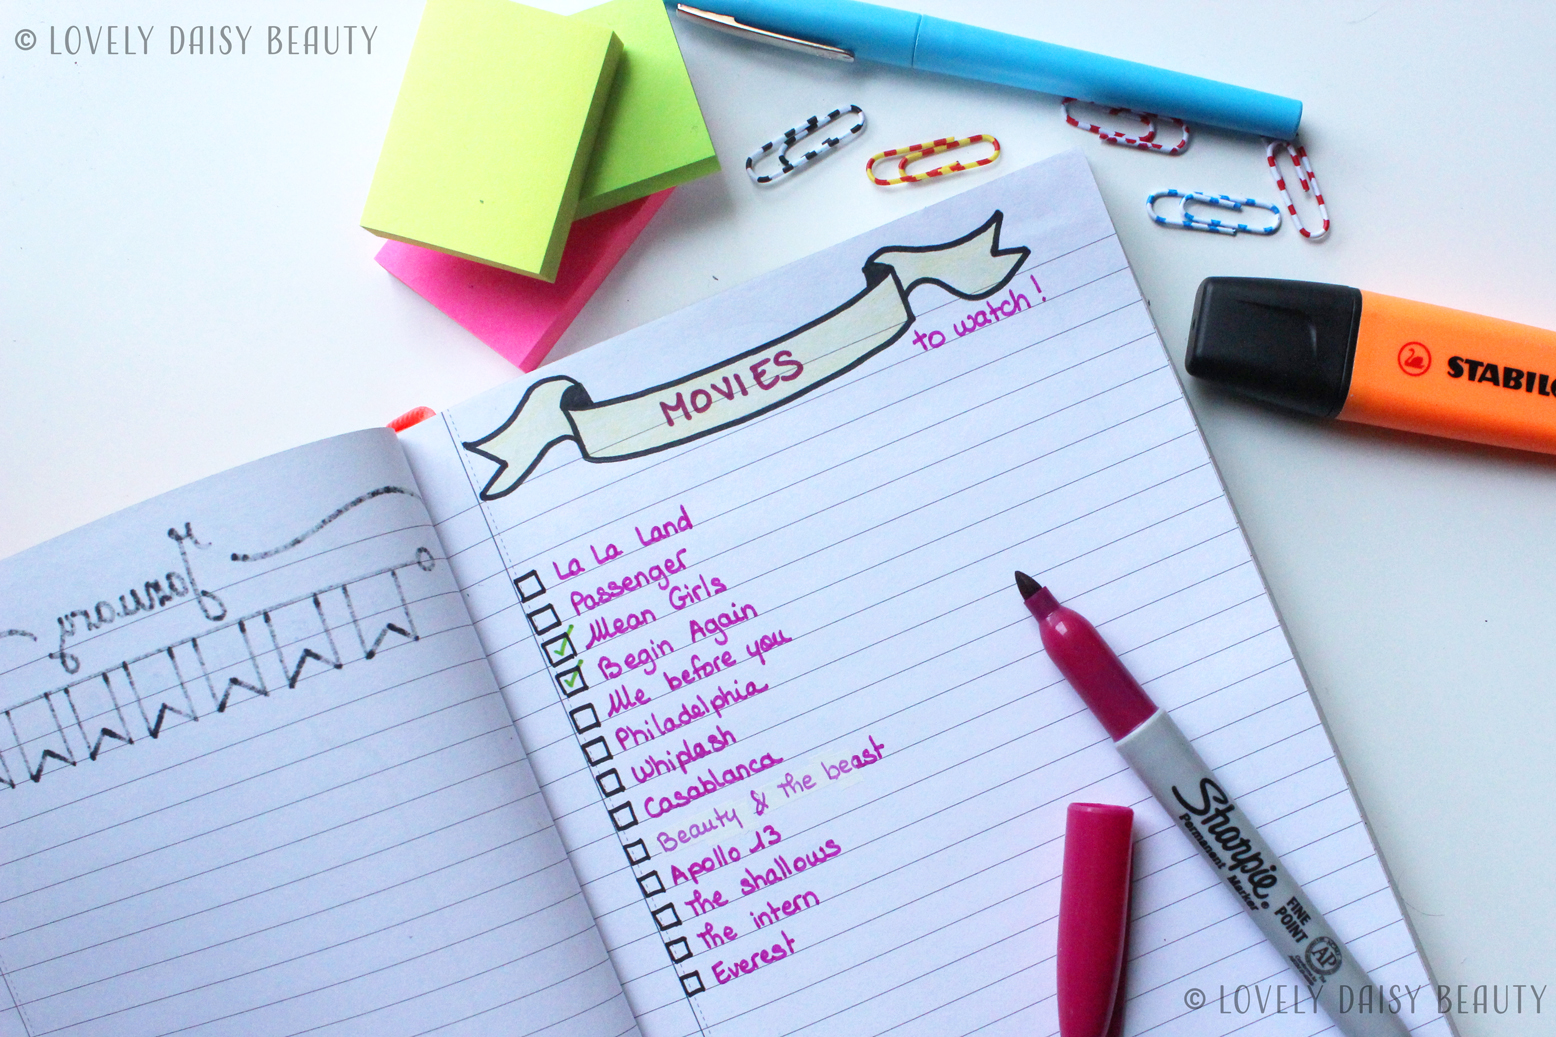 © LOVELY DAISY BEAUTY
MOVIES
to watch!
La La Land
Passenger
Mean Girls
Begin Again
Me before you
Philadelphia
Whiplash
Casablanca
Beauty & the beast
Apollo 13
The shallows
The intern
Everest
STABILO
Sharpie.
Permanent Marker
FINE POINT
AP
© LOVELY DAISY BEAUTY